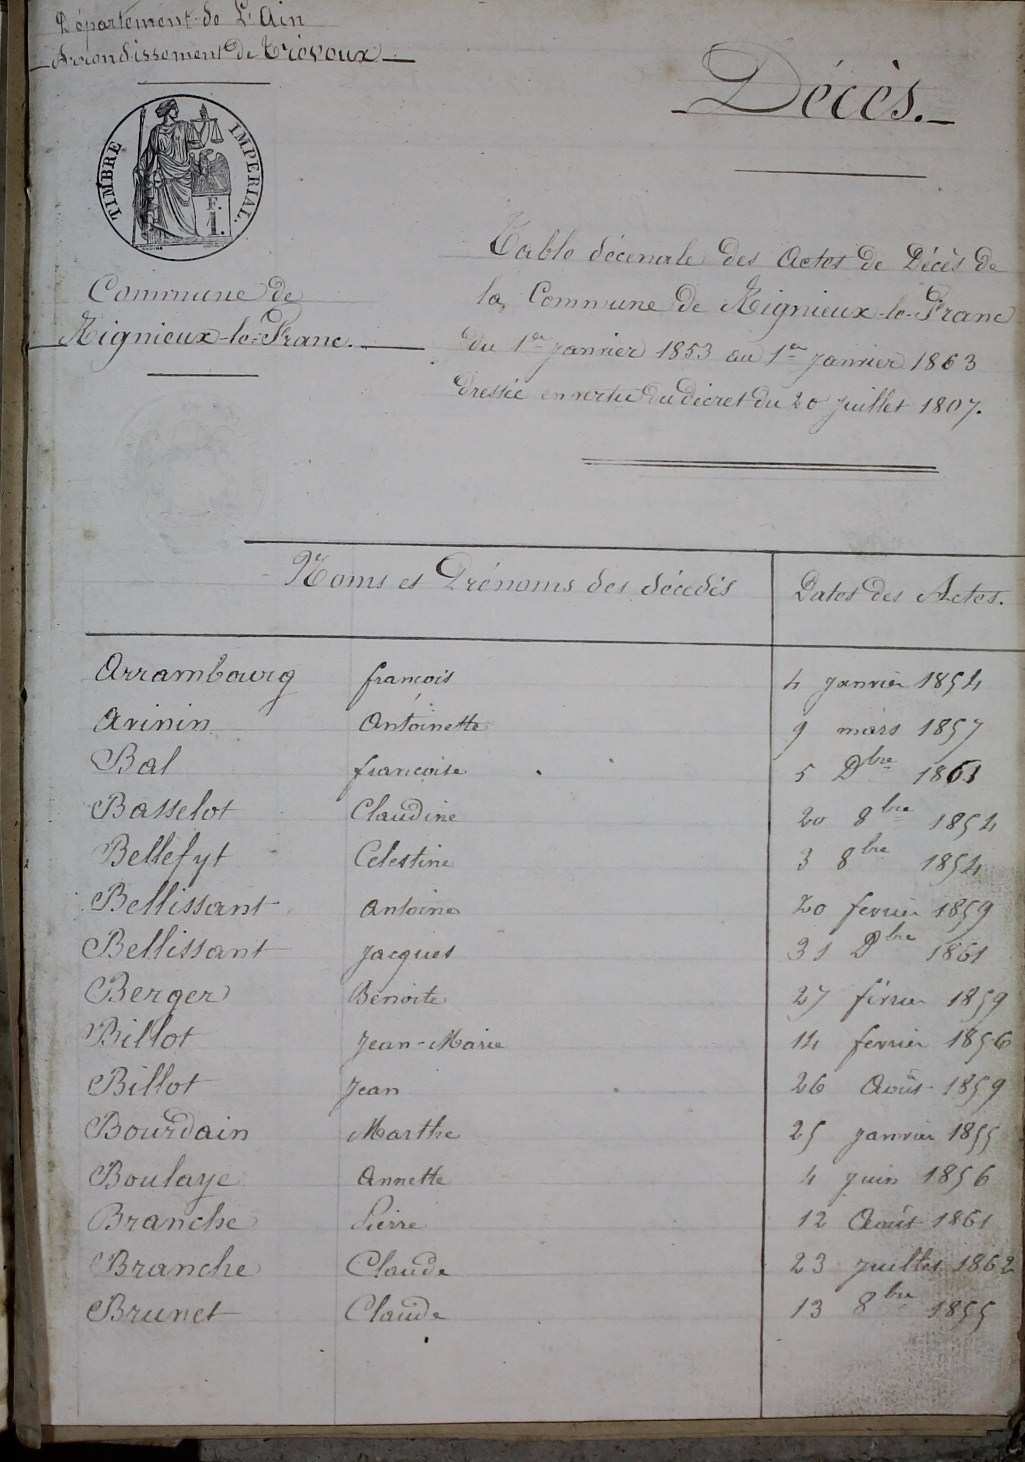 Département de L'Ain
Arrondissement de Trévoux
Décès.
TIMBRE IMPERIAL.
F.
1.
Commune de
Mignieux-le-Franc.
Table décenale des Actes de Décès de
la Commune de Mignieux-le-Franc
du 1er janvier 1853 au 1er janvier 1863
dressée en vertu du décret du 20 juillet 1807.
Noms et Prénoms des décédés Dates des Actes.
Arrambourg françois 4 janvier 1854
Avinin Antoinette 9 mars 1857
Bal françoise 5 Dbre
Basselot Claudine 20 8bre 1854
Bellefyt Celestine 3 8bre 1854
Bellissant Antoine 20 fevrier 1859
Bellissant Jacques 31 Dbre 1861
Berger Benoite 27 févrie 1859
Billot Jean-Marie 14 fevrier 1856
Billot Jean 26 Août 1859
Bourdain Marthe 25 janvier 1855
Boulaye Annette 4 juin 1856
Branche Pierre 12 Août 1861
Branche Claude 23 juillet 1862
Brunet Claude 13 8bre 1855